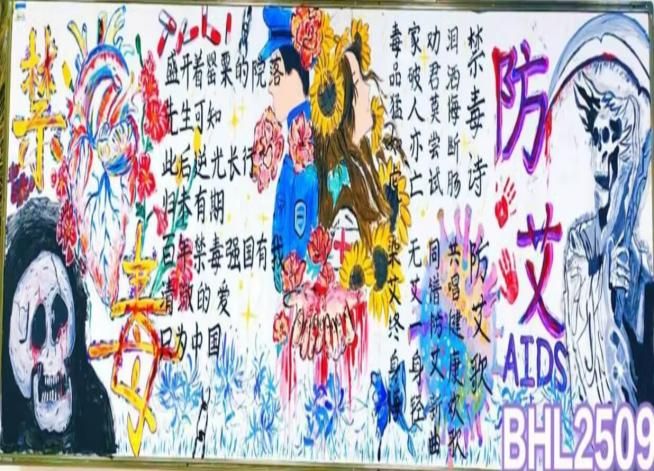 禁毒
盛开着罂粟的院落
先生可知
此后逆光长行
归本有期
百年禁毒强国有我
清澈的爱
只为中国
禁毒诗
泪洒悔断肠
劝君莫尝试
家破人亦亡
毒品猛
防艾歌
共唱健康欢歌
同谱防艾新曲
无艾一身轻
染艾终身
防艾
AIDS
BHL2509